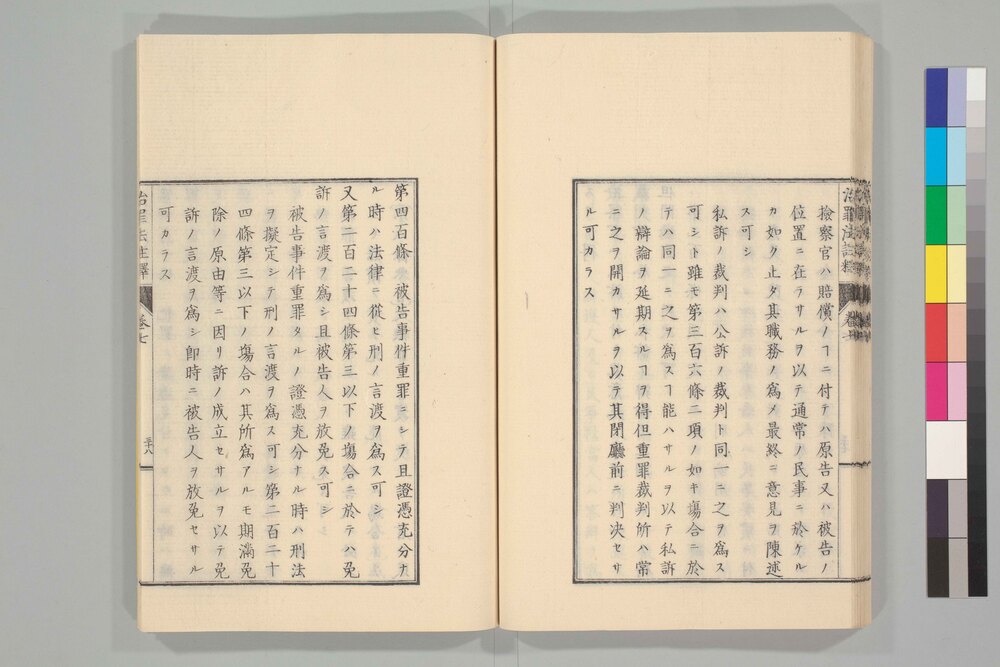 撿察官ハ賠償ノヿニ付テハ原告又ハ被告ノ
位置ニ在ラサルヲ以テ通常ノ民事ニ於ケル
カ如ク止タ其職務ノ爲メ最終ニ意見ヲ陳述
ス可シ
私訴ノ裁判ハ公訴ノ裁判ト同一ニ之ヲ爲ス
可シト雖モ第三百六條二項ノ如キ塲合ニ於
テハ同一ニ之ヲ爲スヿ能ハサルヲ以テ私訴
ノ辯論ヲ延期スルヿヲ得但重罪裁判所ハ常
ニ之ヲ開カサルヲ以テ其閉廳前ニ判决セサ
ル可カラス
第四百條 被告事件重罪ニシテ且證憑充分ナ
ル時ハ法律ニ從ヒ刑ノ言渡ヲ爲ス可シ
又第二百二十四條第三以下ノ塲合ニ於テハ免
訴ノ言渡ヲ爲シ且被告人ヲ放免ス可シ
被告事件重罪タルノ證憑充分ナル時ハ刑法
ヲ擬定シテ刑ノ言渡ヲ爲ス可シ第二百二十
四條第三以下ノ塲合ハ其所爲アルモ期滿免
除ノ原由等ニ因リ訴ノ成立セサルヲ以テ免
訴ノ言渡ヲ爲シ卽時ニ被告人ヲ放免セサル
可カラス
治罪法註釋 卷七